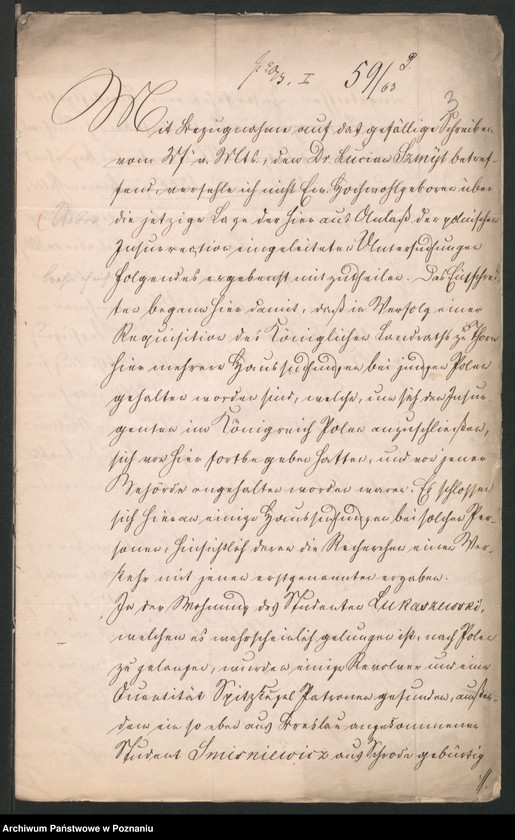 I 59/63 P.
3
Mit Bezugnahme auf das gefällige Schreiben
vom v. Mts., den Dr. Lucian Szmyt betref-
fend, verfehle ich nicht Ew. Hochwohlgeboren über
die jetzige Lage der hier aus Anlaß der polnischen
Insurrection eingeleiteten Untersuchungen
Folgendes ergebenst mitzutheilen. Das Einschrei-
ten begann hier damit, daß in Verfolg einer
Requisition des Königlichen Landraths zu Thorn
hier mehrere Haussuchungen bei jungen Polen
gehalten worden sind, welche, um sich den Insur-
genten im Königreich Polen anzuschließen,
sich von hier fortbegeben hatten, und von jener
Behörde angehalten worden waren. Es schlossen
sich hieran einige Haussuchungen bei solchen Per-
sonen, hinsichtlich deren die Recherchen einen Ver-
kehr mit jenen erstgenannten ergaben.
In der Wohnung des Studenten Lukaszewski,
welchem es wahrscheinlich gelungen ist, nach Polen
zu gelangen, wurden einige Revolver und eine
Quantität Spitzkugel Patronen gefunden, außer-
dem ein so eben aus Breslau angekommener
Student Smisniewicz aus Schroda gebürtig
Archiwum Państwowe w Poznaniu